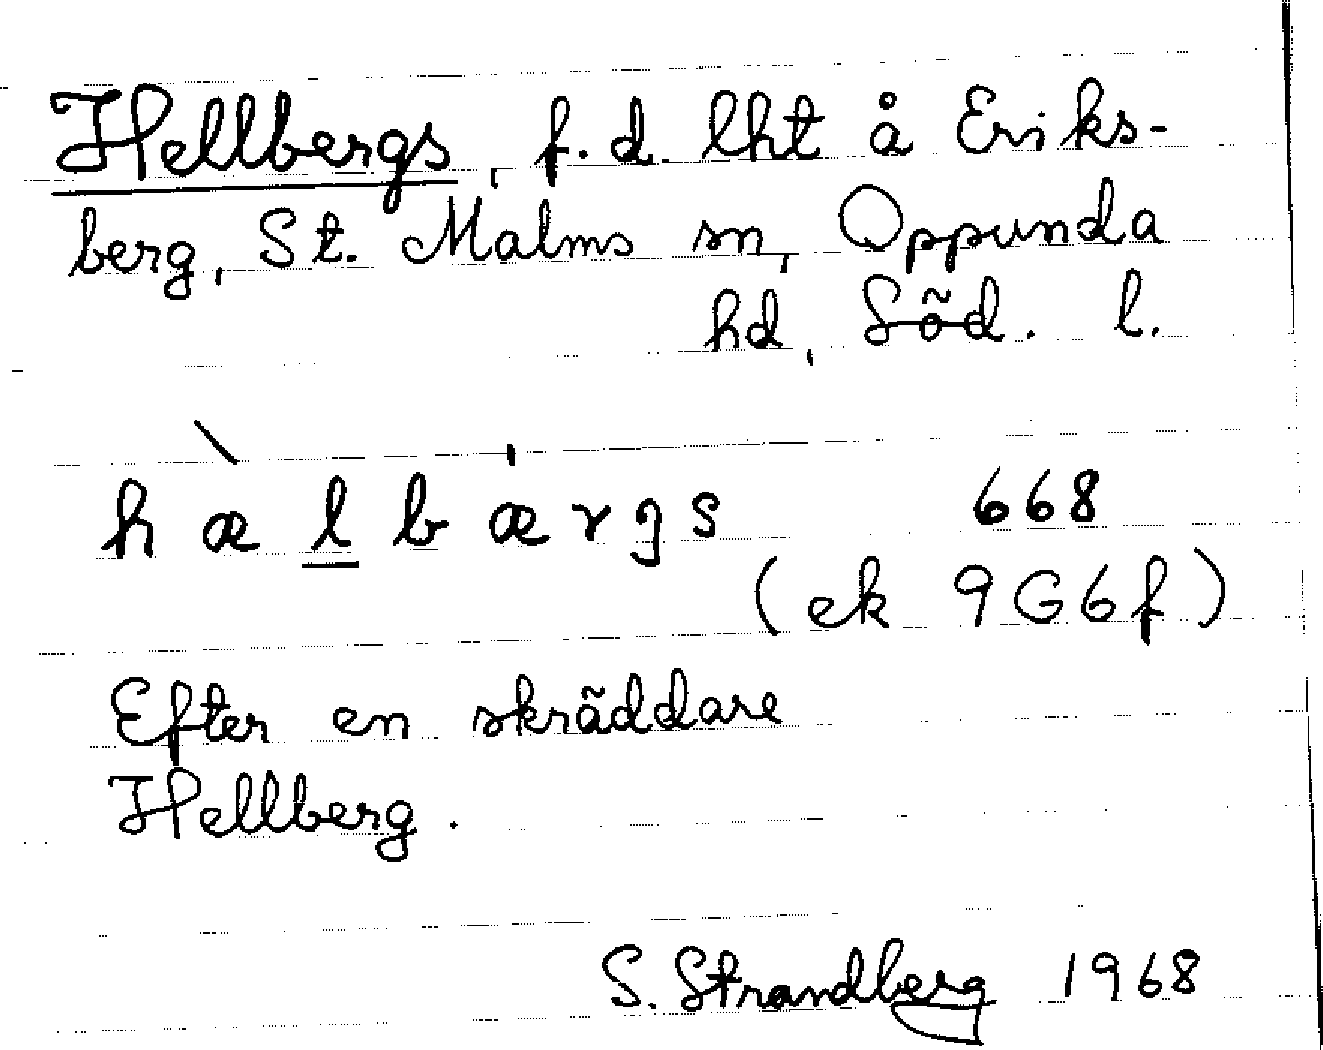 Hellbergs, f.d. lht å Eriks-
berg, St. Malms sn, Oppunda
hd, Söd. l.
hælbærgs 668
(ek 9G6f)
Efter en skräddare
Hellberg.
S. Strandberg 1968